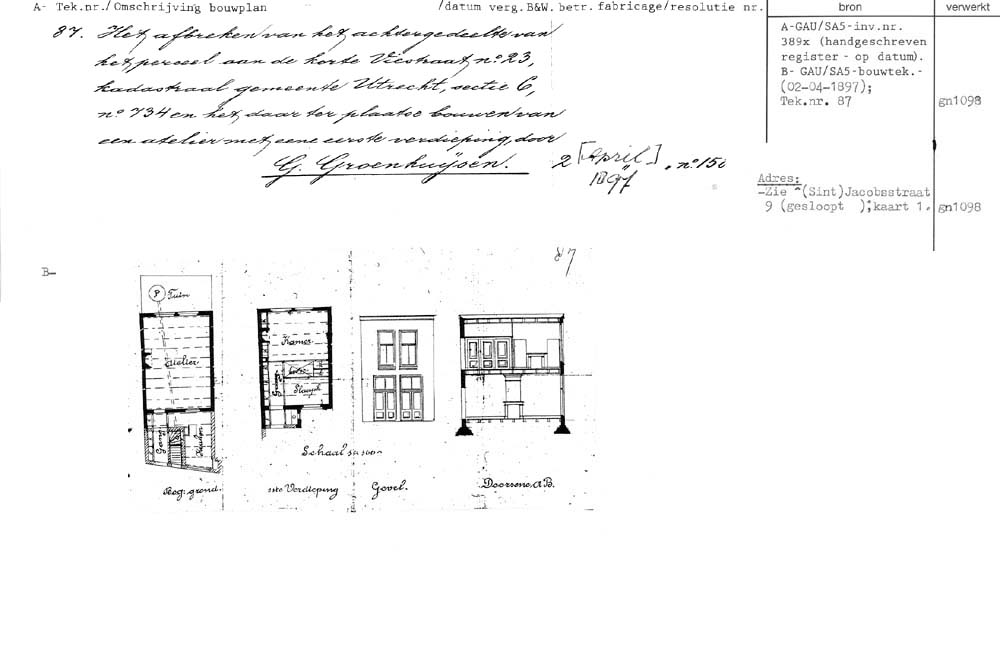 A- Tek.nr./Omschrijving bouwplan /datum verg.B&W. betr. fabricage/resolutie nr. bron verwerkt
87. Het afbreken van het achtergedeelte van
het perceel aan de korte Viestraat n° 23,
kadastraal gemeente Utrecht, sectie C,
n° 734 en het daar ter plaatse bouwen van
een atelier met eene eerste verdieping, door
G. Groenhuijsen. 2 [April] 1897 , n° 150
A-GAU/SA5-inv.nr.
389x (handgeschreven
register - op datum).
B- GAU/SA5-bouwtek.-
(02-04-1897);
Tek.nr. 87 gn1098
Adres:
-Zie ^(Sint)Jacobsstraat
9 (gesloopt ); kaart 1. gn1098
B-
87
P Tuin
Atelier
Gang
Keuken
Kamer
Slaapk
Schaal
Beg: grond.
1ste Verdieping
Gevel.
Doorsne. A B.